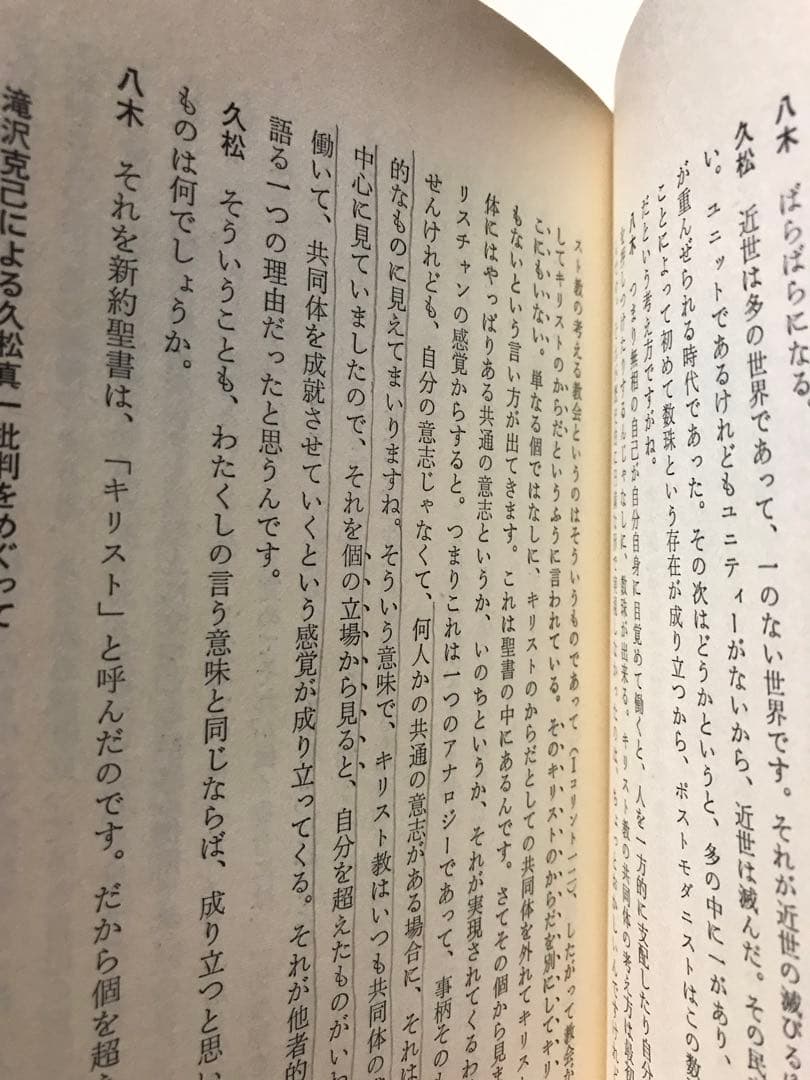 八木　ばらばらになる。
久松　近世は多の世界であって、一のない世界です。それが近世の滅びる
い。ユニットであるけれどもユニティーがないから、近世は滅んだ。その
が重んぜられる時代であった。その次はどうかというと、多の中に一があり、
ことによって初めて数珠という存在が成り立つから、ポストモダニストはこの数
だという考え方ですがね。
八木　つまり無相の自己が自分自身に目覚めて働くと、人を一方的に支配したり自分
しつけたりするんじゃなしに、数珠が出来る。キリスト教の共同体の考え方は最初
スト教の考える教会というのはそういうものであって（Iコリント一二）、したがって教会
してキリストのからだというふうに言われている。そのキリストのからだを別にして、キリ
こにもいない。単なる個ではなしに、キリストのからだとしての共同体を外れてキリスト
もないという言い方が出てきます。これは聖書の中にあるんです。さてその個から見ま
体にはやっぱりある共通の意志というか、いのちというか、それが実現されてくるわ
リスチャンの感覚からすると。つまりこれは一つのアナロジーであって、事柄そのも
せんけれども、自分の意志じゃなくて、何人かの共通の意志がある場合に、それは
的なものに見えてまいりますね。そういう意味で、キリスト教はいつも共同体の
中心に見ていましたので、それを個の立場から見ると、自分を超えたものがいわ
働いて、共同体を成就させていくという感覚が成り立ってくる。それが他者的
語る一つの理由だったと思うんです。
久松　そういうことも、わたくしの言う意味と同じならば、成り立つと思い
ものは何でしょうか。
八木　それを新約聖書は、「キリスト」と呼んだのです。だから個を超
滝沢克己による久松真一批判をめぐって